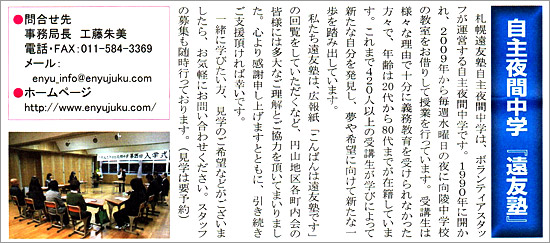 自主夜間中学『遠友塾』
札幌遠友塾自主夜間中学は、ボランティアスタッ
フが運営する自主夜間中学です。1990年に開か
れ、2009年から毎週水曜日の夜に向陵中学校
の教室をお借りして授業を行っています。受講生は
様々な理由で十分に義務教育を受けられなかった
方々で、年齢は20代から80代までが在籍していま
す。これまで420人以上の受講生が学びによって
新たな自分を発見し、夢や希望に向けて新たな一
歩を踏み出しています。
私たち遠友塾は、広報紙「こんばんは遠友塾です」
の回覧をしていただくなど、円山地区各町内会の
皆様には多大なご理解とご協力を頂いてまいりまし
た。心より感謝申し上げますとともに、引き続き
ご支援頂ければ幸いです。
一緒に学びたい方、見学のご希望などございま
したら、お気軽にお問い合わせください。スタッフ
の募集も随時行っております。(見学は要予約)
●問合せ先
事務局長 工藤朱美
電話・FAX:011-584-3369
メール:
enyu_info@enyujuku.com
●ホームページ
http://www.enyujuku.com/
入学式